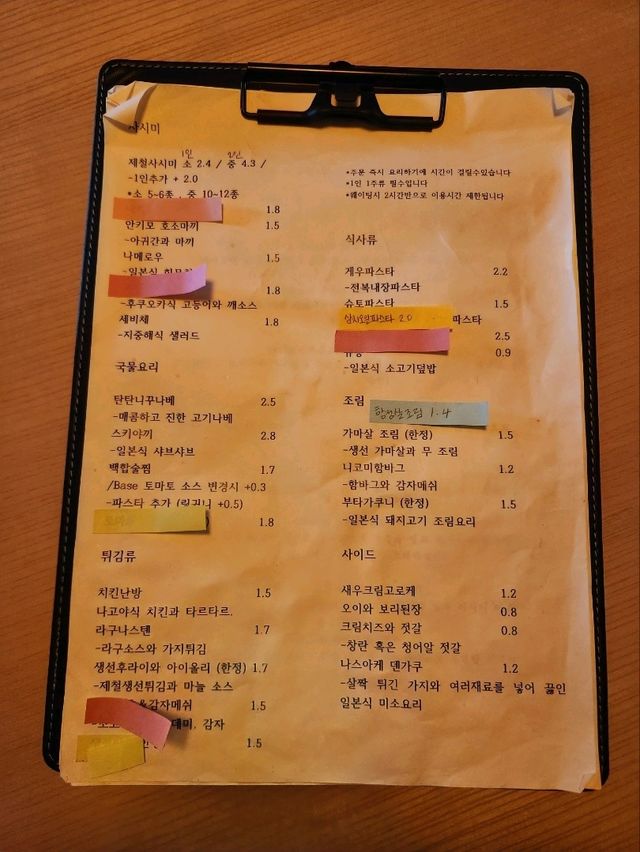 사시미
1인 2인
제철사시미 소 2.4 / 중 4.3 /
-1인추가 + 2.0
*소 5~6종 , 중 10~12종
1.8
안키모 호소마끼 1.5
-아귀간과 마끼
나메로우 1.5
-일본식
1.8
-후쿠오카식 고등어와 깨소스
세비체 1.8
-지중해식 샐러드
국물요리
탄탄니꾸나베 2.5
-매콤하고 진한 고기나베
스키야끼 2.8
-일본식 샤브샤브
백합술찜 1.7
/Base 토마토 소스 변경시 +0.3
-파스타 추가 (링귀니 +0.5)
1.8
튀김류
치킨난방 1.5
나고야식 치킨과 타르타르.
라구나스텐 1.7
-라구소스와 가지튀김
생선후라이와 아이올리 (한정) 1.7
-제철생선튀김과 마늘 소스
&감자메쉬 1.5
데미, 감자
1.5
*주문 즉시 요리하기에 시간이 걸릴수있습니다
*1인 1주류 필수입니다
*웨이팅시 2시간만으로 이용시간 제한됩니다
식사류
게우파스타 2.2
-전복내장파스타
슈토파스타 1.5
파스타 2.0 파스타
2.5
0.9
-일본식 소고기덮밥
조림 1.4
가마살 조림 (한정) 1.5
-생선 가마살과 무 조림
니코미함바그 1.2
-함바그와 감자메쉬
부타가쿠니 (한정) 1.5
-일본식 돼지고기 조림요리
사이드
새우크림고로케 1.2
오이와 보리된장 0.8
크림치즈와 젓갈 0.8
-창란 혹은 청어알 젓갈
나스아게 덴가쿠 1.2
-살짝 튀긴 가지와 여러재료를 넣어 끓인
일본식 미소요리